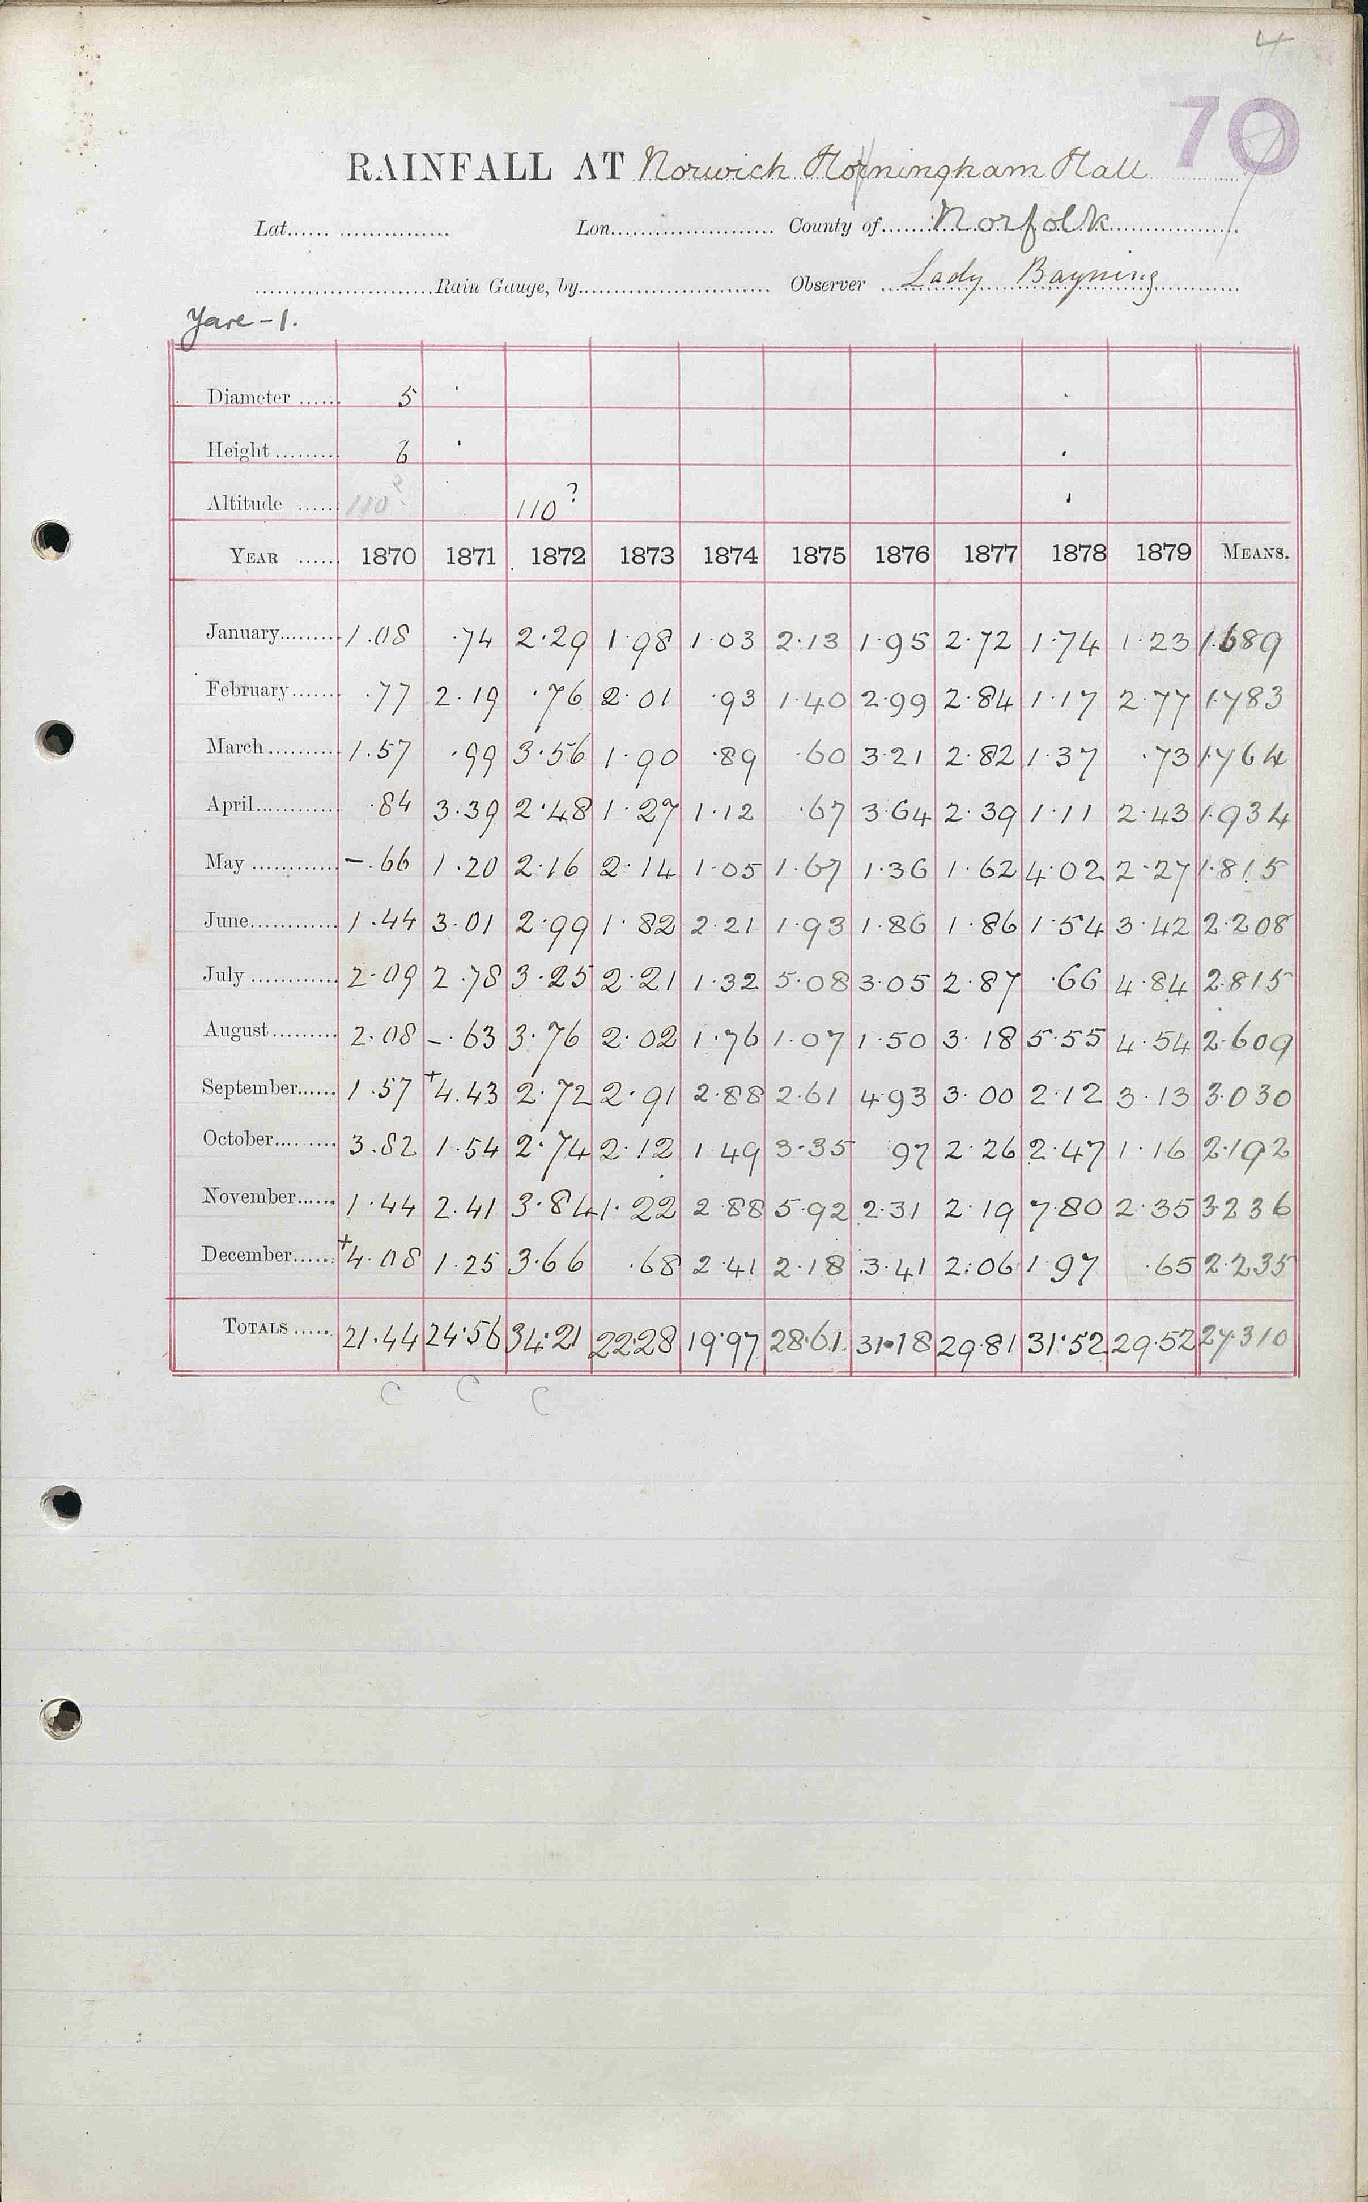 4
70
RAINFALL AT Norwich Horningham Hall
Lat. Lon. County of Norfolk
Rain Gauge, by Observer Lady Bayning
Yare - 1.
Diameter 5
Height 6
Altitude 110? 110?
YEAR 1870 1871 1872 1873 1874 1875 1876 1877 1878 1879 MEANS.
January 1.08 .74 2.29 1.98 1.03 2.13 1.95 2.72 1.74 1.23 1.689
February .77 2.19 .76 2.01 .93 1.40 2.99 2.84 1.17 2.77 1.783
March 1.57 .99 3.56 1.90 .89 .60 3.21 2.82 1.37 .73 1.764
April .84 3.39 2.48 1.27 1.12 .67 3.64 2.39 1.11 2.43 1.934
May -.66 1.20 2.16 2.14 1.05 1.67 1.36 1.62 4.02 2.27 1.815
June 1.44 3.01 2.99 1.82 2.21 1.93 1.86 1.86 1.54 3.42 2.208
July 2.09 2.78 3.25 2.21 1.32 5.08 3.05 2.87 .66 4.84 2.815
August 2.08 -.63 3.76 2.02 1.76 1.07 1.50 3.18 5.55 4.54 2.609
September 1.57 +4.43 2.72 2.91 2.88 2.61 4.93 3.00 2.12 3.13 3.030
October 3.82 1.54 2.74 2.12 1.49 3.35 97 2.26 2.47 1.16 2.192
November 1.44 2.41 3.84 1.22 2.88 5.92 2.31 2.19 7.80 2.35 3.236
December +4.08 1.25 3.66 .68 2.41 2.18 3.41 2.06 1.97 .65 2.235
TOTALS 21.44 24.56 34.21 22.28 19.97 28.61 31.18 29.81 31.52 29.52 27.310
C C C